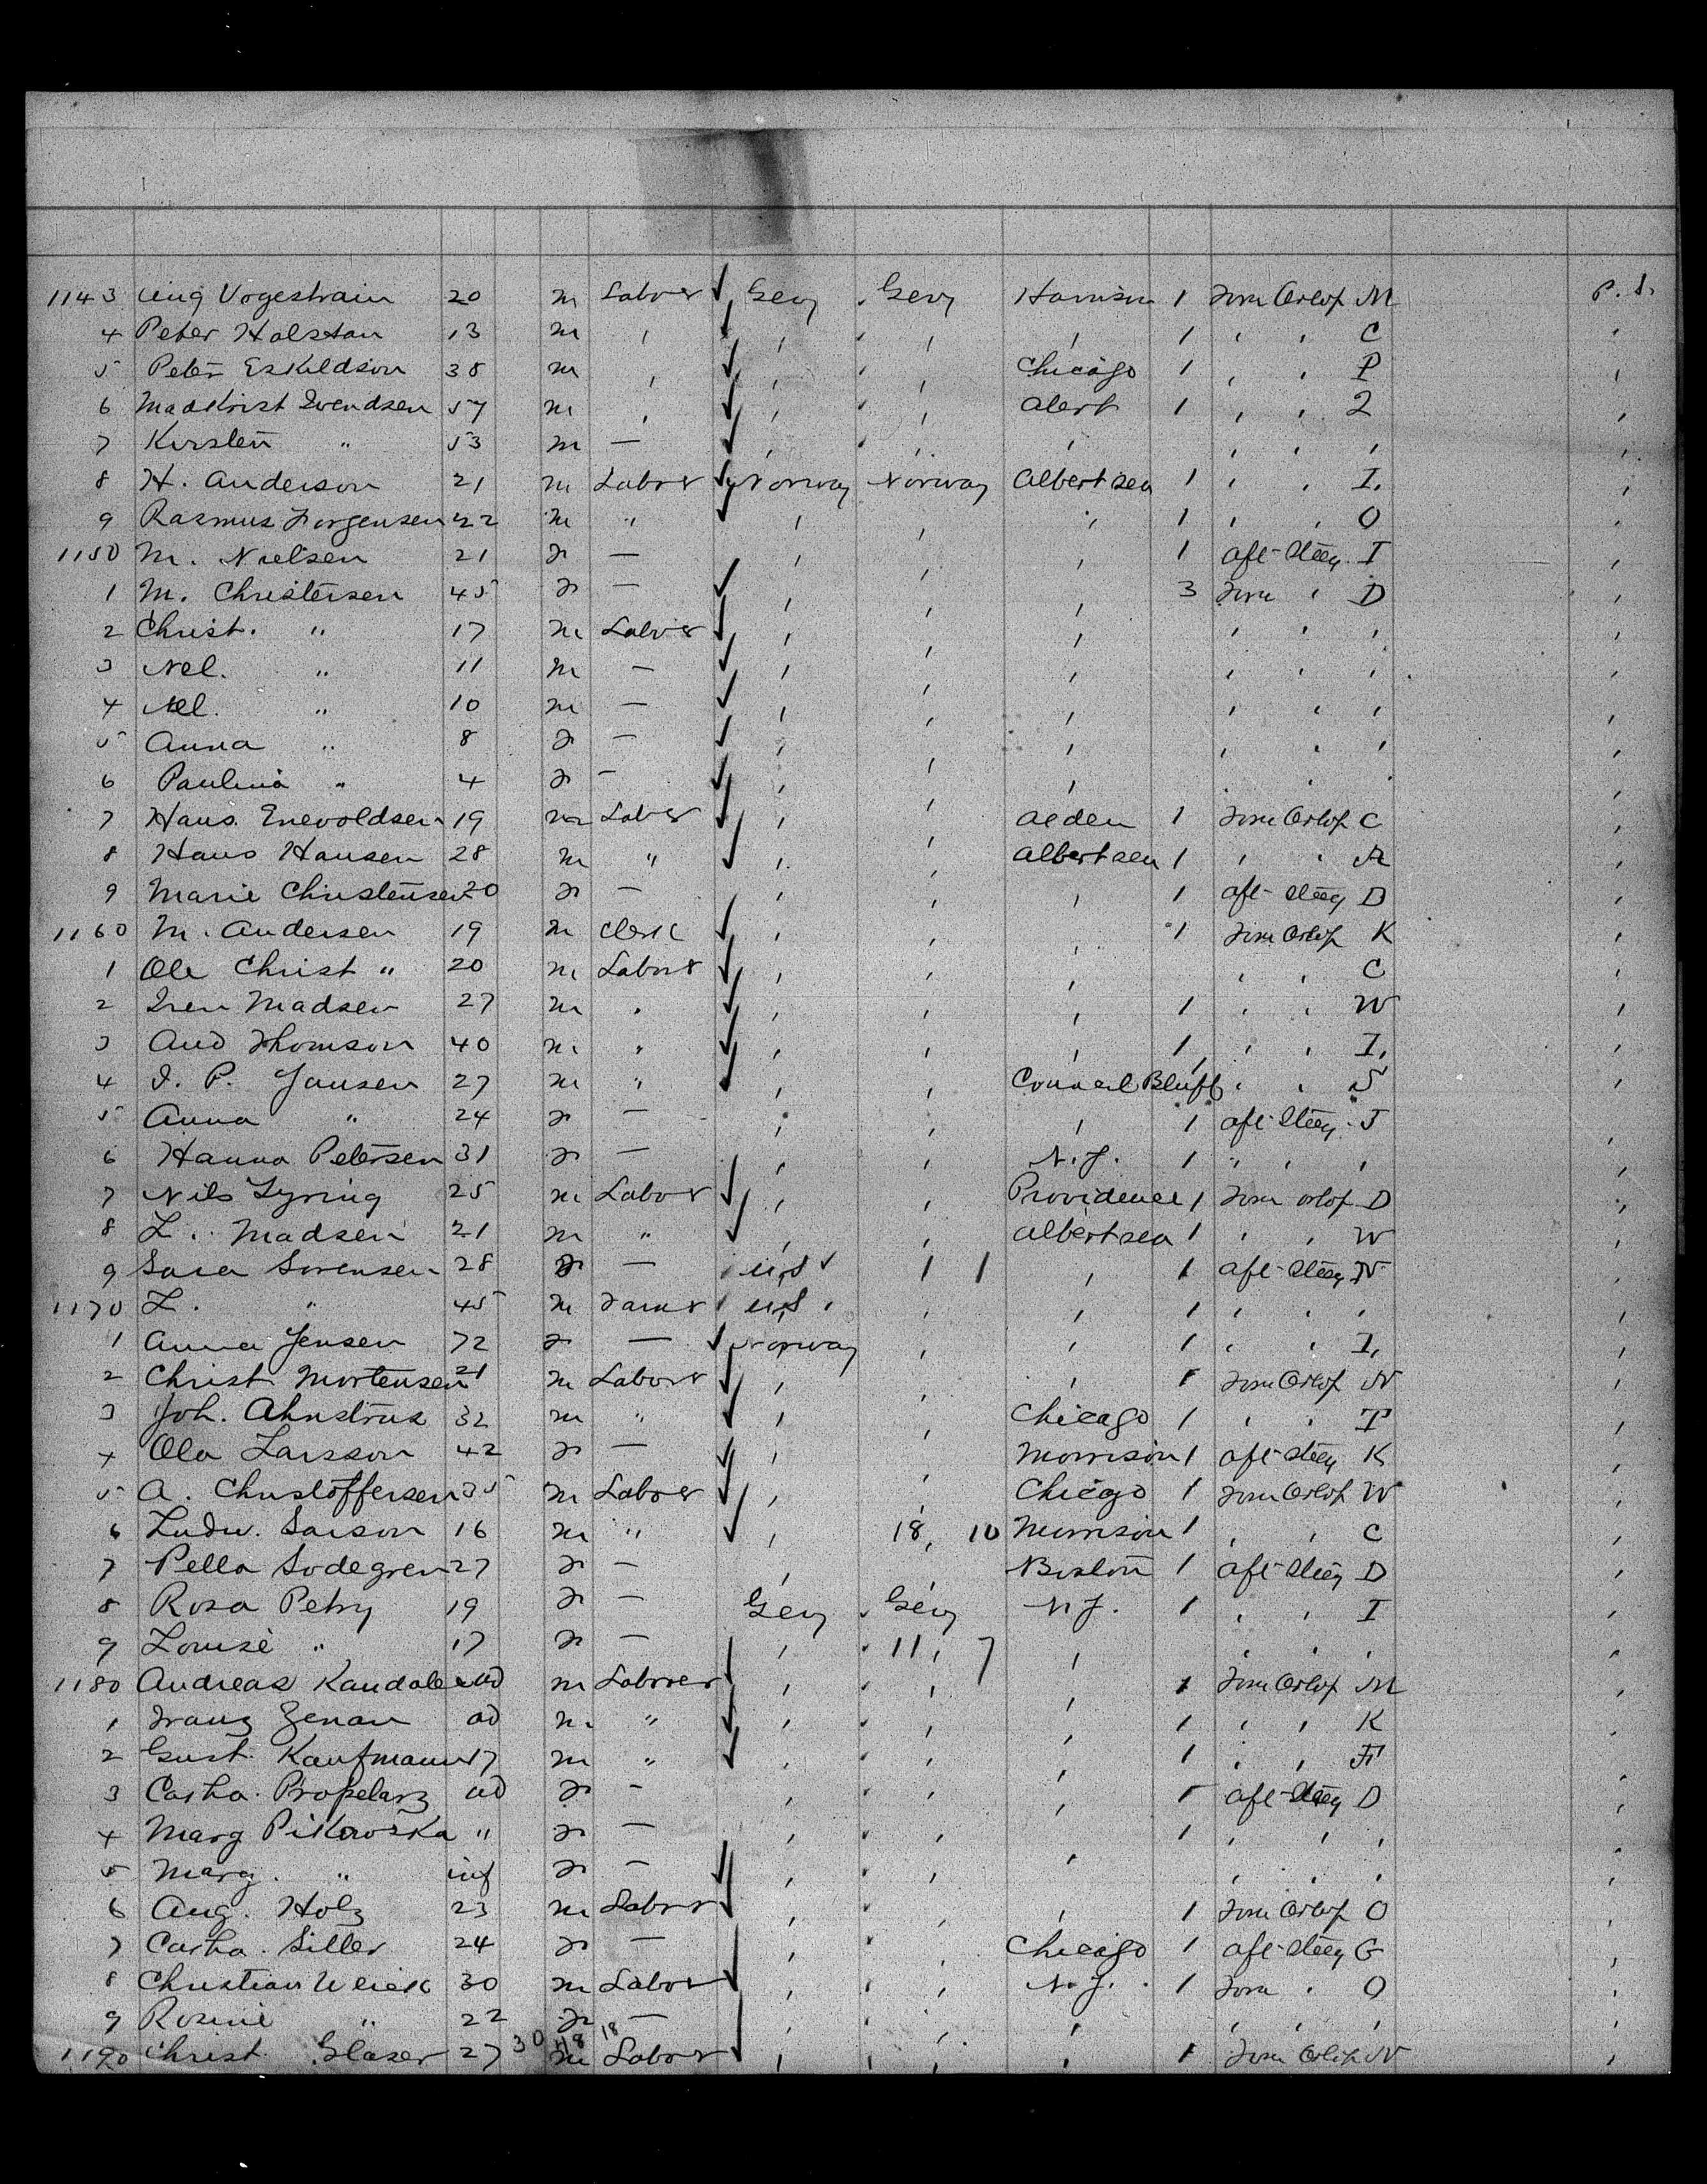 1143 Aug Vogestrain 20 m Labor ✓ Gery Gery Harrison 1 Forw Orlop M P. S.
4 Peter Halstan 13 m , ✓ , , , 1 , , C ,
5 Peter Eskildson 38 m , ✓ , , Chicago 1 , , P ,
6 Mad Krist Svendsen 57 m , ✓ , , Alert 1 , , 2 ,
7 Kirsten " 53 m — ✓ , , , , , , ,
8 H. Anderson 21 m Labor ✓ Norway Norway Albert sea 1 , , I. ,
9 Rasmus Jorgensen 22 m " ✓ , , " 1 , , O ,
1150 M. Nielsen 21 F — , , , 1 aft-Steeg. I ,
1 M. Christersen 45 F — ✓ , , , 3 Forw , D ,
2 Christ. " 17 m Labor ✓ , , , , , , ,
3 Nel. " 11 m — ✓ , , , , , , ,
4 Nel. " 10 m — ✓ , , , , , , ,
5 Anna " 8 F — ✓ , , , , , , ,
6 Paulina " 4 F — ✓ , , , , , , ,
7 Hans Enevoldsen 19 m Labor ✓ , , Aeden 1 Forw Orlop C ,
8 Hans Hansen 28 m " ✓ , , Albert sea 1 , , M ,
9 Marie Christensen 20 F — , , , 1 aft-Steeg D ,
1160 M. Andersen 19 m Clerk ✓ , , , 1 Forw Orlop K ,
1 Ole Christ " 20 m Labor ✓ , , , , , C ,
2 Iven Madsen 27 m , ✓ , , , 1 , , W ,
3 And Thomson 40 m " ✓ , , , 1 , , I. ,
4 I. P. Jansen 27 m " ✓ , , Council Bluff , , S
5 Anna " 24 F — , , , 1 aft-Steeg. J ,
6 Hanna Petersen 31 F — , , N.J. 1 " , , ,
7 Nils Lyring 25 m Labor ✓ , , Providence 1 Forw Orlop D ,
8 L. Madsen 21 m " ✓ , , Albert sea 1 , , W ,
9 Sara Sorensen 28 F — U.S 1 1 , 1 aft-Steeg N ,
1170 L. " 45 m Farmr U.S , , , 1 , , , ,
1 Anna Jensen 72 F — ✓ Norway , , 1 , , I. ,
2 Christ Mortensen 21 m Labor ✓ , , , 1 Forw Orlop N ,
3 Joh. Ahnstrus 32 m " ✓ , , Chicago 1 , , P ,
4 Ola Larsson 42 F — ✓ , , Morrison 1 aft-Steeg K ,
5 A. Christoffersen 35 m Labor ✓ , , Chicago 1 Forw Orlop W ,
6 Ludw. Sarson 16 m " ✓ , 18, 10 Morrison 1 , , C ,
7 Pella Sodegren 27 F — , , Boston 1 aft-Steeg D ,
8 Rosa Petry 19 F — Gery Gery N J. 1 , , I ,
9 Louise " 17 F — , 11, 7 , , , , ,
1180 Andreas Kandale ad m Laborer ✓ , , , 1 Forw Orlop M ,
1 Franz Zenan ad m. " ✓ , , , 1 , , K ,
2 Gust. Kaufmann 17 m " ✓ , , , 1 , , F ,
3 Catha. Propelarz ad F — , , , 1 aft-Steeg D ,
4 Marg Pikowska " F — , , 1 , , , ,
5 Marg. " inf F — ✓ , , , , , , ,
6 Aug. Holz 23 m Labor ✓ , , , 1 Forw Orlop O ,
7 Catha. Siller 24 F — , , Chicago 1 aft-Steeg G ,
8 Christian Weick 30 m Labor ✓ , , N.J. 1 Forw , O ,
9 Rosine " 22 F — , , , , , , ,
1190 Christ. Glaser 27 30 48 18 m Labor ✓ , , , 1 Forw Orlop N ,